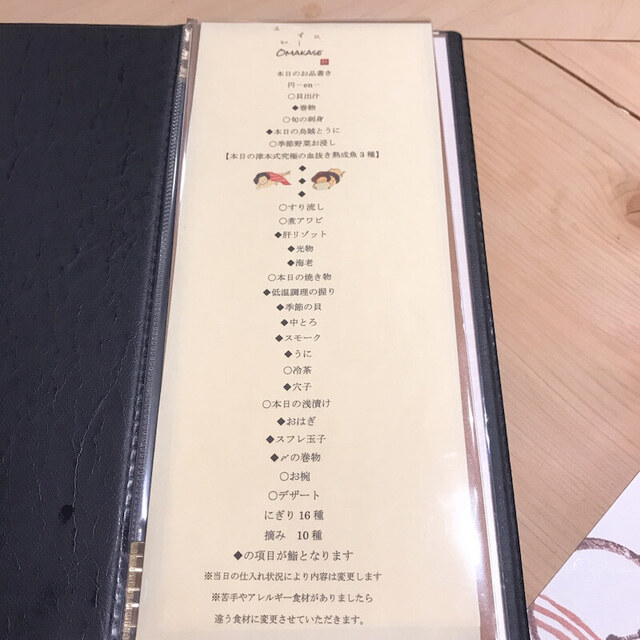 OMAKASE
本日のお品書き
円－en－
〇貝出汁
◆巻物
〇旬の刺身
◆本日の烏賊とうに
〇季節野菜お浸し
【本日の津本式究極の血抜き熟成魚３種】
◆
◆
◆
〇すり流し
〇煮アワビ
◆肝リゾット
◆光物
◆海老
〇本日の焼き物
◆低温調理の握り
◆季節の貝
◆中とろ
◆スモーク
◆うに
〇冷茶
◆穴子
〇本日の浅漬け
◆おはぎ
◆スフレ玉子
◆〆の巻物
〇お椀
〇デザート
にぎり 16 種
摘み 10 種
◆の項目が鮨となります
※当日の仕入れ状況により内容は変更します
※苦手やアレルギー食材がありましたら
違う食材に変更させていただきます。